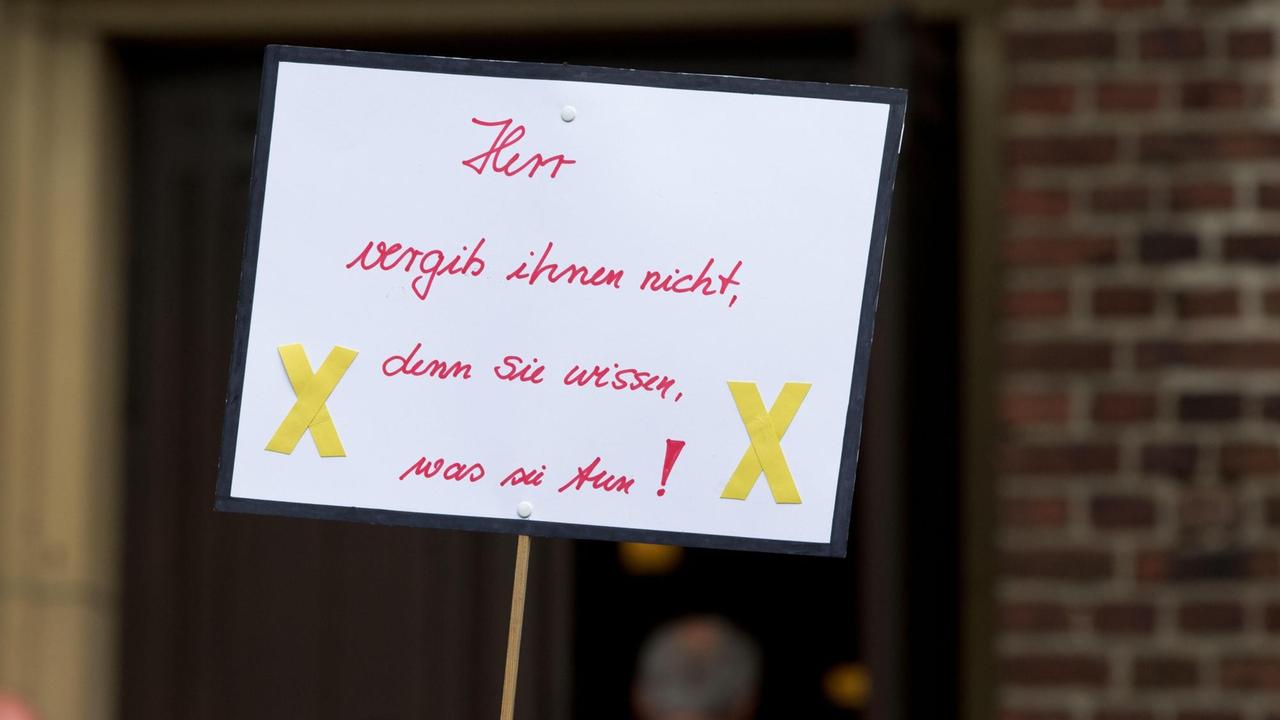 Herr
vergib ihnen nicht,
denn sie wissen,
was sie tun!
X X